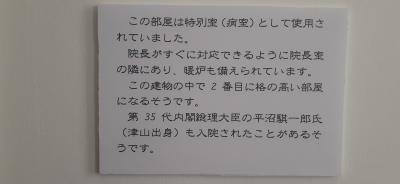 この部屋は特別室（病室）として使用さ
れていました。
院長がすぐに対応できるように院長室
の隣にあり、暖炉も備えられています。
この建物の中で２番目に格の高い部屋
になるそうです。
第 35 代内閣総理大臣の平沼騏一郎氏
（津山出身）も入院されたことがあるそ
うです。